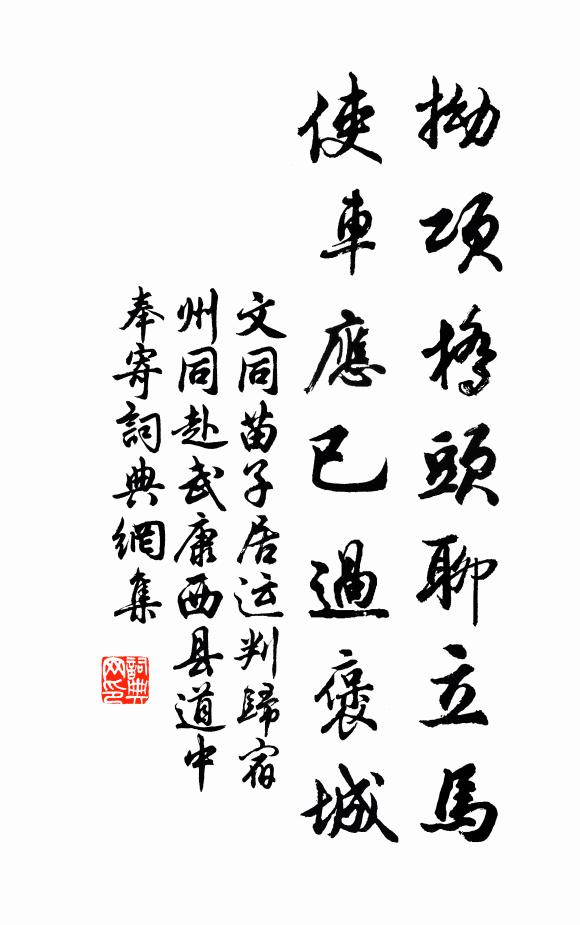 拗項橋頭聊立馬
使車應已過褒城
文同苗子居运判歸宿
州同赴武康西县道中
奉寄詞典網集
詞典网印